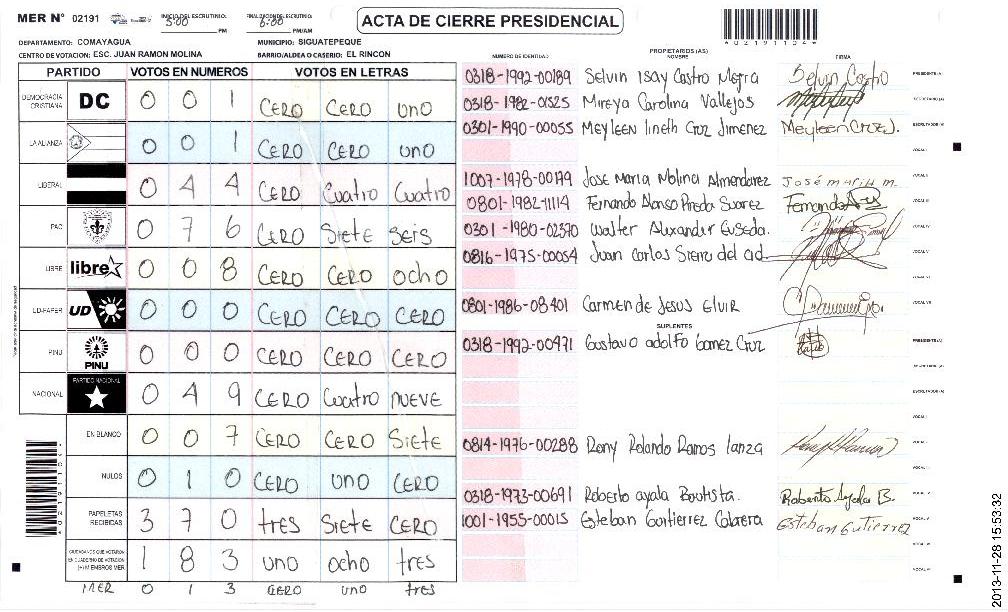 MER N° 02191 INICIO DEL ESCRUTINIO: 5:00 PM FINALIZACION ESCRUTINIO: 6:00 PM/AM
ACTA DE CIERRE PRESIDENCIAL
DEPARTAMENTO: COMAYAGUA MUNICIPIO: SIGUATEPEQUE
CENTRO DE VOTACION: ESC. JUAN RAMON MOLINA BARRIO/ALDEA O CASERIO: EL RINCON
PARTIDO VOTOS EN NUMEROS VOTOS EN LETRAS
DEMOCRACIA CRISTIANA DC 0 0 1 CERO CERO uno
LA ALIANZA 0 0 1 CERO CERO uno
LIBERAL 0 4 4 CERO Cuatro Cuatro
PAC 0 7 6 CERO SIETE SEIS
LIBRE libre 0 0 8 CERO CERO ocho
UD-FAPER UD 0 0 0 CERO CERO CERO
PINU PINU 0 0 0 CERO CERO CERO
NACIONAL PARTIDO NACIONAL 0 4 9 CERO Cuatro NUEVE
EN BLANCO 0 0 7 CERO CERO SIETE
NULOS 0 1 0 CERO uno CERO
PAPELETAS RECIBICAS 3 7 0 tres SIETE CERO
CIUDADANOS QUE VOTARON EN CUADERNO DE VOTACION (+) MIEMBROS MER 1 8 3 uno ocho tres
MER 0 1 3 CERO uno tres
NUMERO DE IDENTIDAD PROPIETARIOS (AS) NOMBRE FIRMA
0318-1992-00189 Selvin Isay Castro Mejra Selvin Castro PRESIDENTE (A)
0318-1982-01525 Mireya Carolina Vallejos SECRETARIO (A)
0301-1990-00055 Meyleen lineth Cruz Jimenez Meyleen Cruz J. ESCRUTADOR (A)
VOCAL I
1007-1978-00179 Jose Maria Molina Almendarez José maria m. VOCAL II
0801-1982-11114 Fernando Alonso Pineda Suarez Fernando VOCAL III
0301-1980-02370 Walter Alexander Euseda. VOCAL IV
0816-1975-00054 Juan Carlos Sierra del cid. VOCAL V
VOCAL VI
0801-1986-08401 Carmen de Jesus Elvir VOCAL VII
SUPLENTES
0318-1992-00471 Gustavo adolfo Gomez Cruz PRESIDENTE (A)
SECRETARIO (A)
ESCRUTADOR (A)
VOCAL I
0814-1976-00288 Rony Rolando Ramos lanza VOCAL II
VOCAL III
0318-1973-00691 Roberto ayala Bautista. Roberto Ayala B. VOCAL IV
1001-1955-00015 Esteban Gutierrez Cabrera Esteban Gutierrez VOCAL V
VOCAL VI
VOCAL VII
2013-11-28 15:53:32